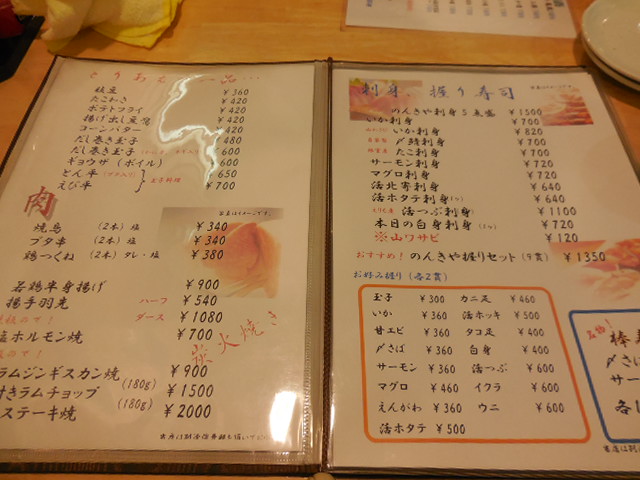 とりあえず一品…
枝豆 ￥360
たこわさ ￥420
ポテトフライ ￥420
揚げ出し豆腐 ￥420
コーンバター ￥420
だし巻き玉子 ￥480
だし巻き玉子 ￥600
ギョウザ(ボイル) ￥600
とん平 ￥650
えび平 玉子料理 ￥700
肉
写真はイメージです。
焼鳥 (2本)塩 ￥340
ブタ串 (2本)塩 ￥340
鶏つくね (2本)タレ・塩 ￥380
若鶏半身揚げ ￥900
揚手羽先 ハーフ ￥540
ダース ￥1080
塩ホルモン焼 ￥700
炭火焼き
ラムジンギスカン焼 (180g) ￥900
付きラムチョップ ￥1500
ステーキ焼 (180g) ￥2000
刺身、握り寿司
のんきや刺身5点盛 ￥1500
いか刺身 ￥700
いか刺身 ￥820
〆鯖刺身 ￥700
たこ刺身 ￥700
サーモン刺身 ￥720
マグロ刺身 ￥720
活北寄刺身 ￥640
活ホタテ刺身 ￥640
活つぶ刺身 ￥1100
本日の白身刺身 ￥720
※山ワサビ ￥120
おすすめ! のんきや握りセット(9貫) ￥1350
お好み握り(各2貫)
玉子 ￥300 カニ足 ￥460
いか ￥360 活ホッキ ￥500
甘エビ ￥360 タコ足 ￥400
〆さば ￥360 白身 ￥400
サーモン ￥360 活つぶ ￥600
マグロ ￥460 イクラ ￥600
えんがわ ￥360 ウニ ￥600
活ホタテ ￥500
名物!
棒
〆さ
サー
各